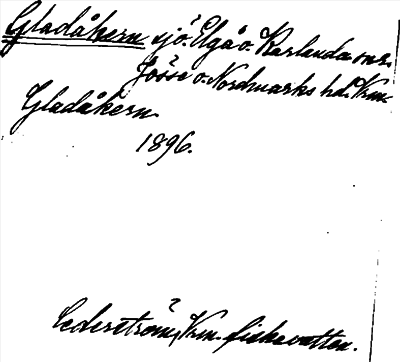 Gladåkern sjö. Elgå o. Karlanda snr.
Jösse o. Nordmarks hd. Vrm.
Gladåkern
1896.
Cederström, Vrm. fiskevatten.